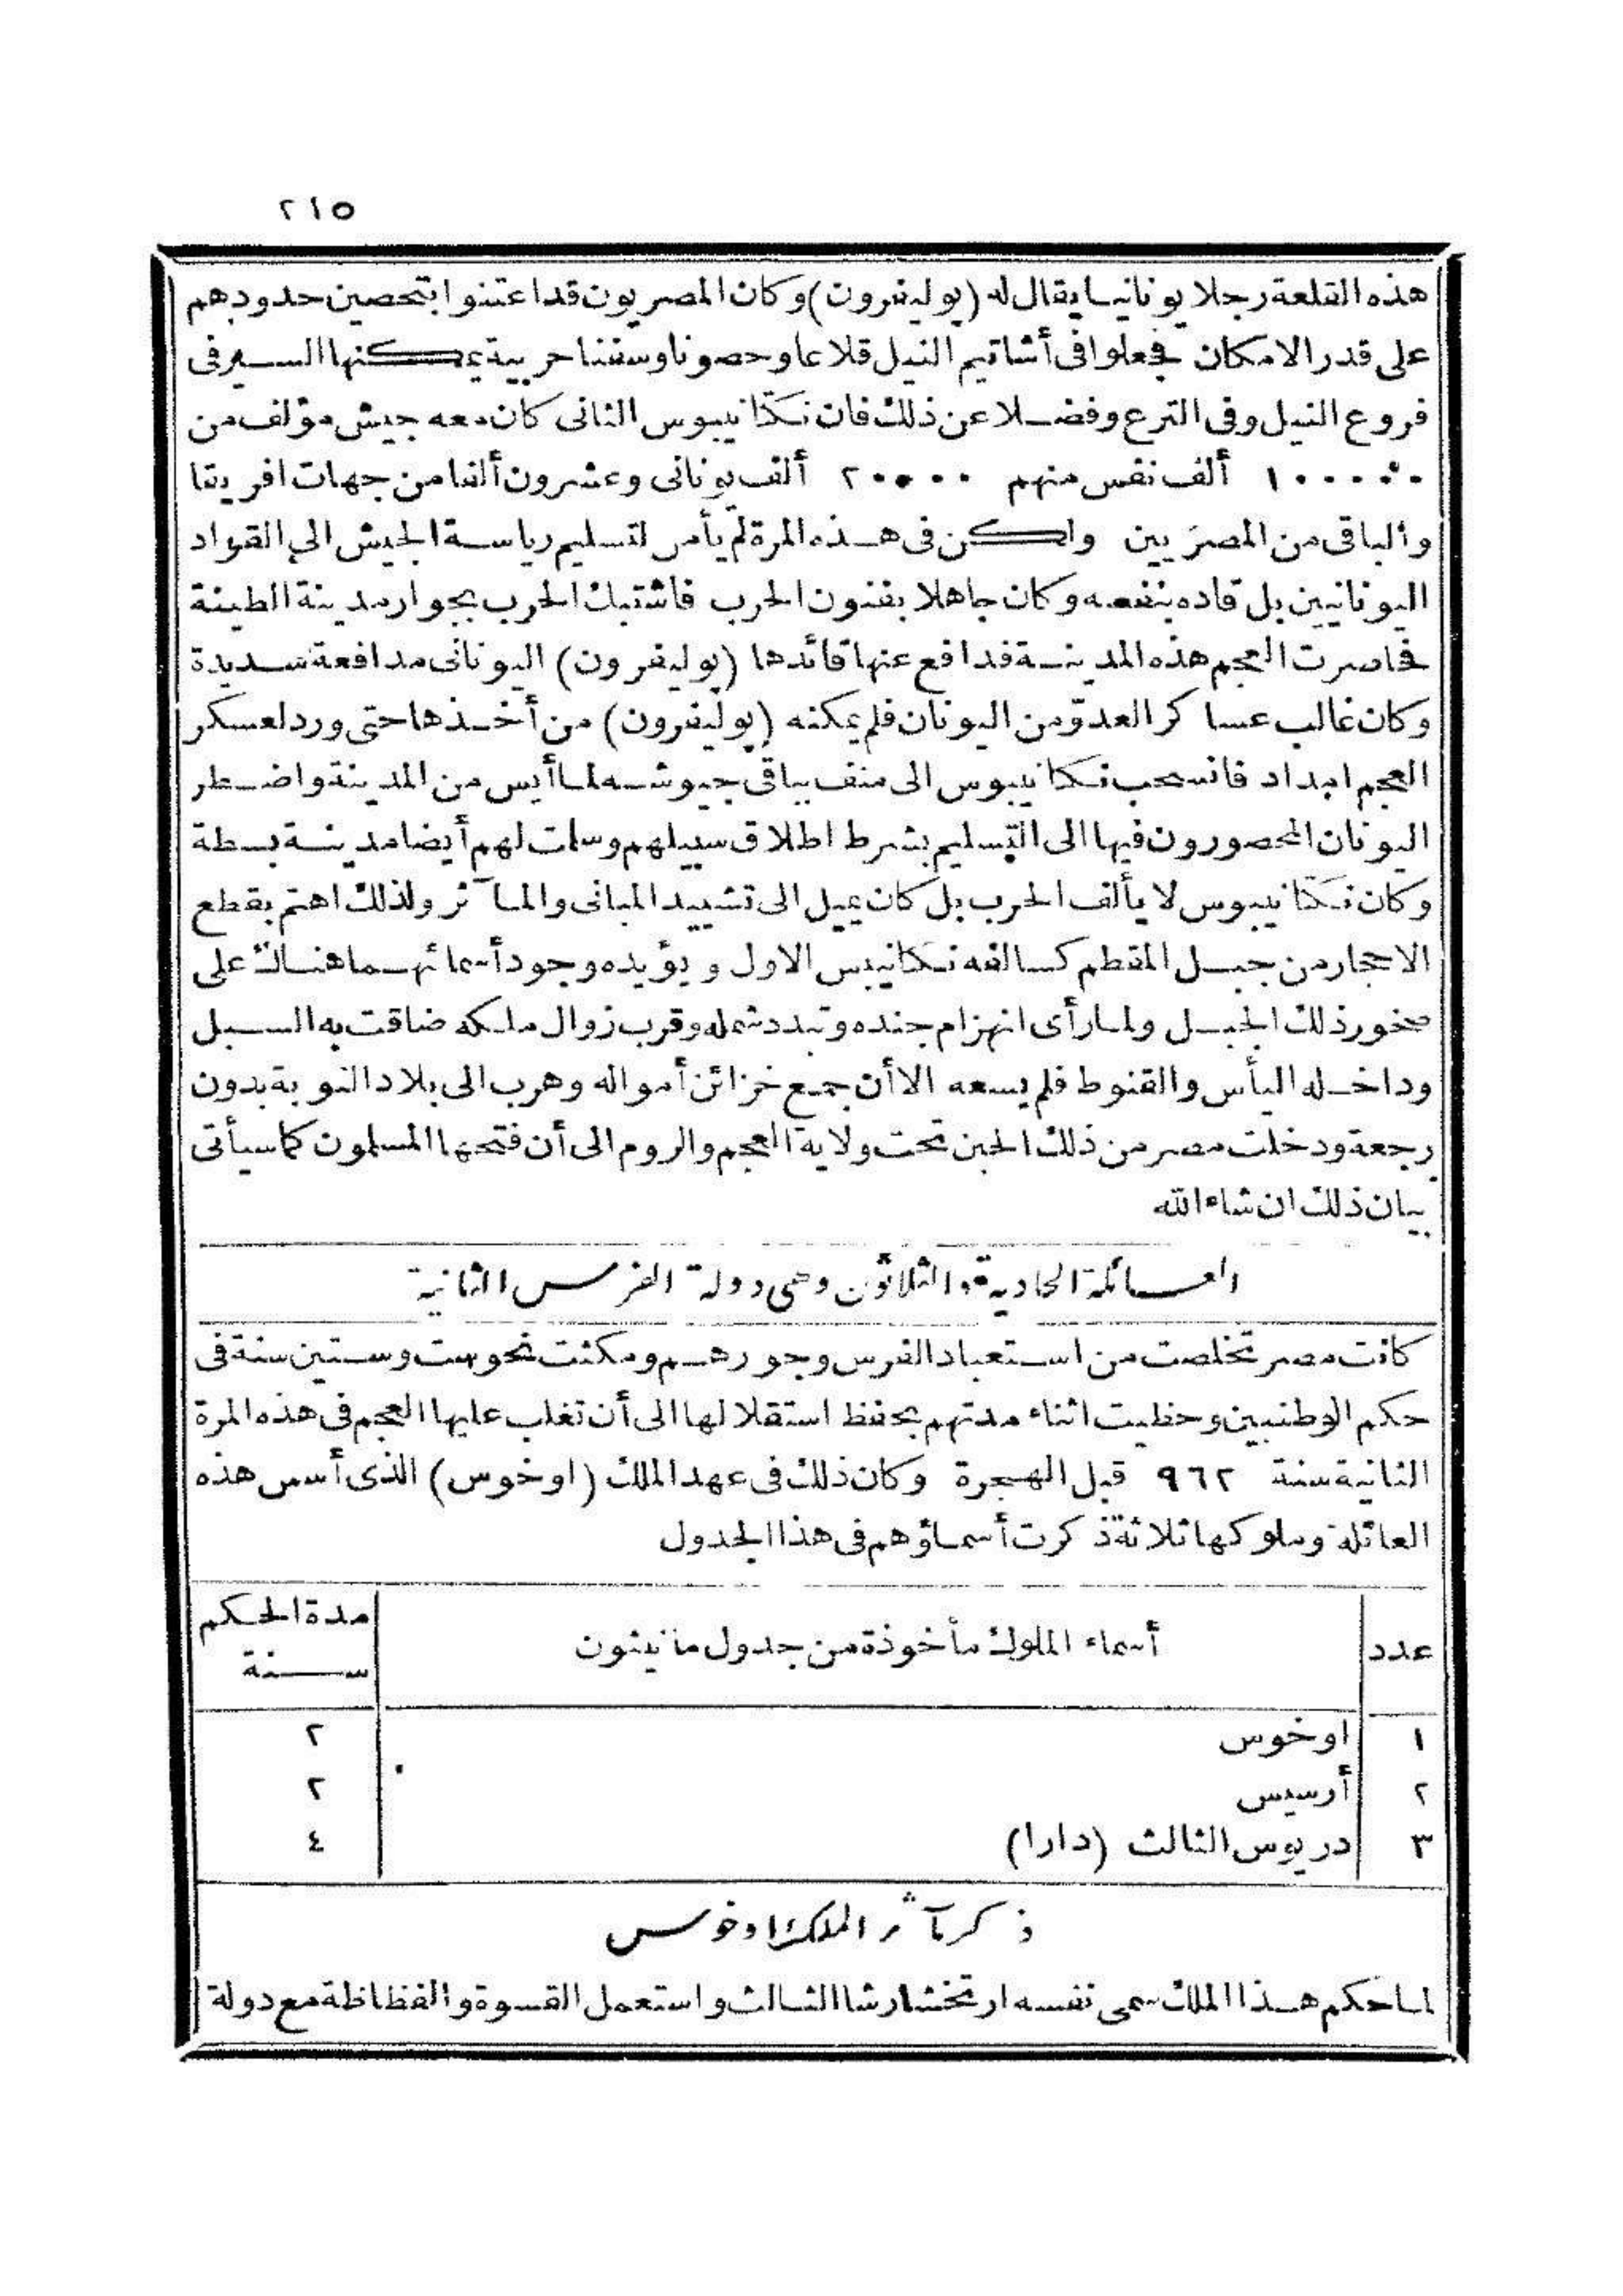 ٢١٥
هذه القلعة رجلا يونانيا يقال له (بوليفرون) وكان المصريون قد اعتنوا بتحصين حدودهم
على قدر الامكان فجعلوا فى أشاتيم النيل قلاعا وحصونا وسفنا حربية يمكنها السير فى
فروع النيل وفى الترع وفضلا عن ذلك فان نكتانيبوس الثانى كان معه جيش مؤلف من
١٠٠٠٠٠ ألف نفس منهم ٢٠٠٠٠ ألف يونانى وعشرون ألفا من جهات افريقا
والباقى من المصريين ولكن فى هذه المرة لم يأمر لتسليم رياسة الجيش الى القواد
اليونانيين بل قاده بنفسه وكان جاهلا بفنون الحرب فاشتبك الحرب بجوار مدينة الطينة
فحاصرت العجم هذه المدينة فدافع عنها قائدها (بوليفرون) اليونانى مدافعة شديدة
وكان غالب عساكر العدوّ من اليونان فلم يمكنه (بوليفرون) من أخذها حتى ورد لعسكر
العجم امداد فانسحب نكتانيبوس الى منف بباقى جيوشه لما أيس من المدينة واضطر
اليونان المحصورون فيها الى التسليم بشرط اطلاق سبيلهم وسلمت لهم أيضا مدينة بسطة
وكان نكتانيبوس لا يألف الحرب بل كان يميل الى تشييد المبانى والمآثر ولذلك اهتم بقطع
الاحجار من جبل المقطم كسالفه نكتانيبس الاول ويؤيده وجود أسمائهما هناك على
صخور ذلك الجبل ولما رأى انهزام جنده وتبدد شمله وقرب زوال ملكه ضاقت به السبل
وداخله اليأس والقنوط فلم يسعه الا أن جمع خزائن أمواله وهرب الى بلاد النوبة بدون
رجعة ودخلت مصر من ذلك الحين تحت ولاية العجم والروم الى أن فتحها المسلمون كما سيأتى
بيان ذلك ان شاء الله
العائلة الحادية والثلاثون وهى دولة الفرس الثانية
كانت مصر تخلصت من استعباد الفرس وجورهم ومكثت نحو ست وستين سنة فى
حكم الوطنيين وحظيت اثناء مدتهم بحفظ استقلالها الى أن تغلب عليها العجم فى هذه المرة
الثانية سنة ٩٦٢ قبل الهجرة وكان ذلك فى عهد الملك (اوخوس) الذى أسس هذه
العائلة وملوكها ثلاثة ذكرت أسماؤهم فى هذا الجدول
عدد أسماء الملوك مأخوذة من جدول مانيثون مدة الحكم
سنة
١ اوخوس ٢
٢ أرسيس ٢
٣ دريوس الثالث (دارا) ٤
ذكر مآثر الملك اوخوس
لما حكم هذا الملك سمى نفسه ارتخشارشا الثالث واستعمل القسوة والفظاظة مع دولة